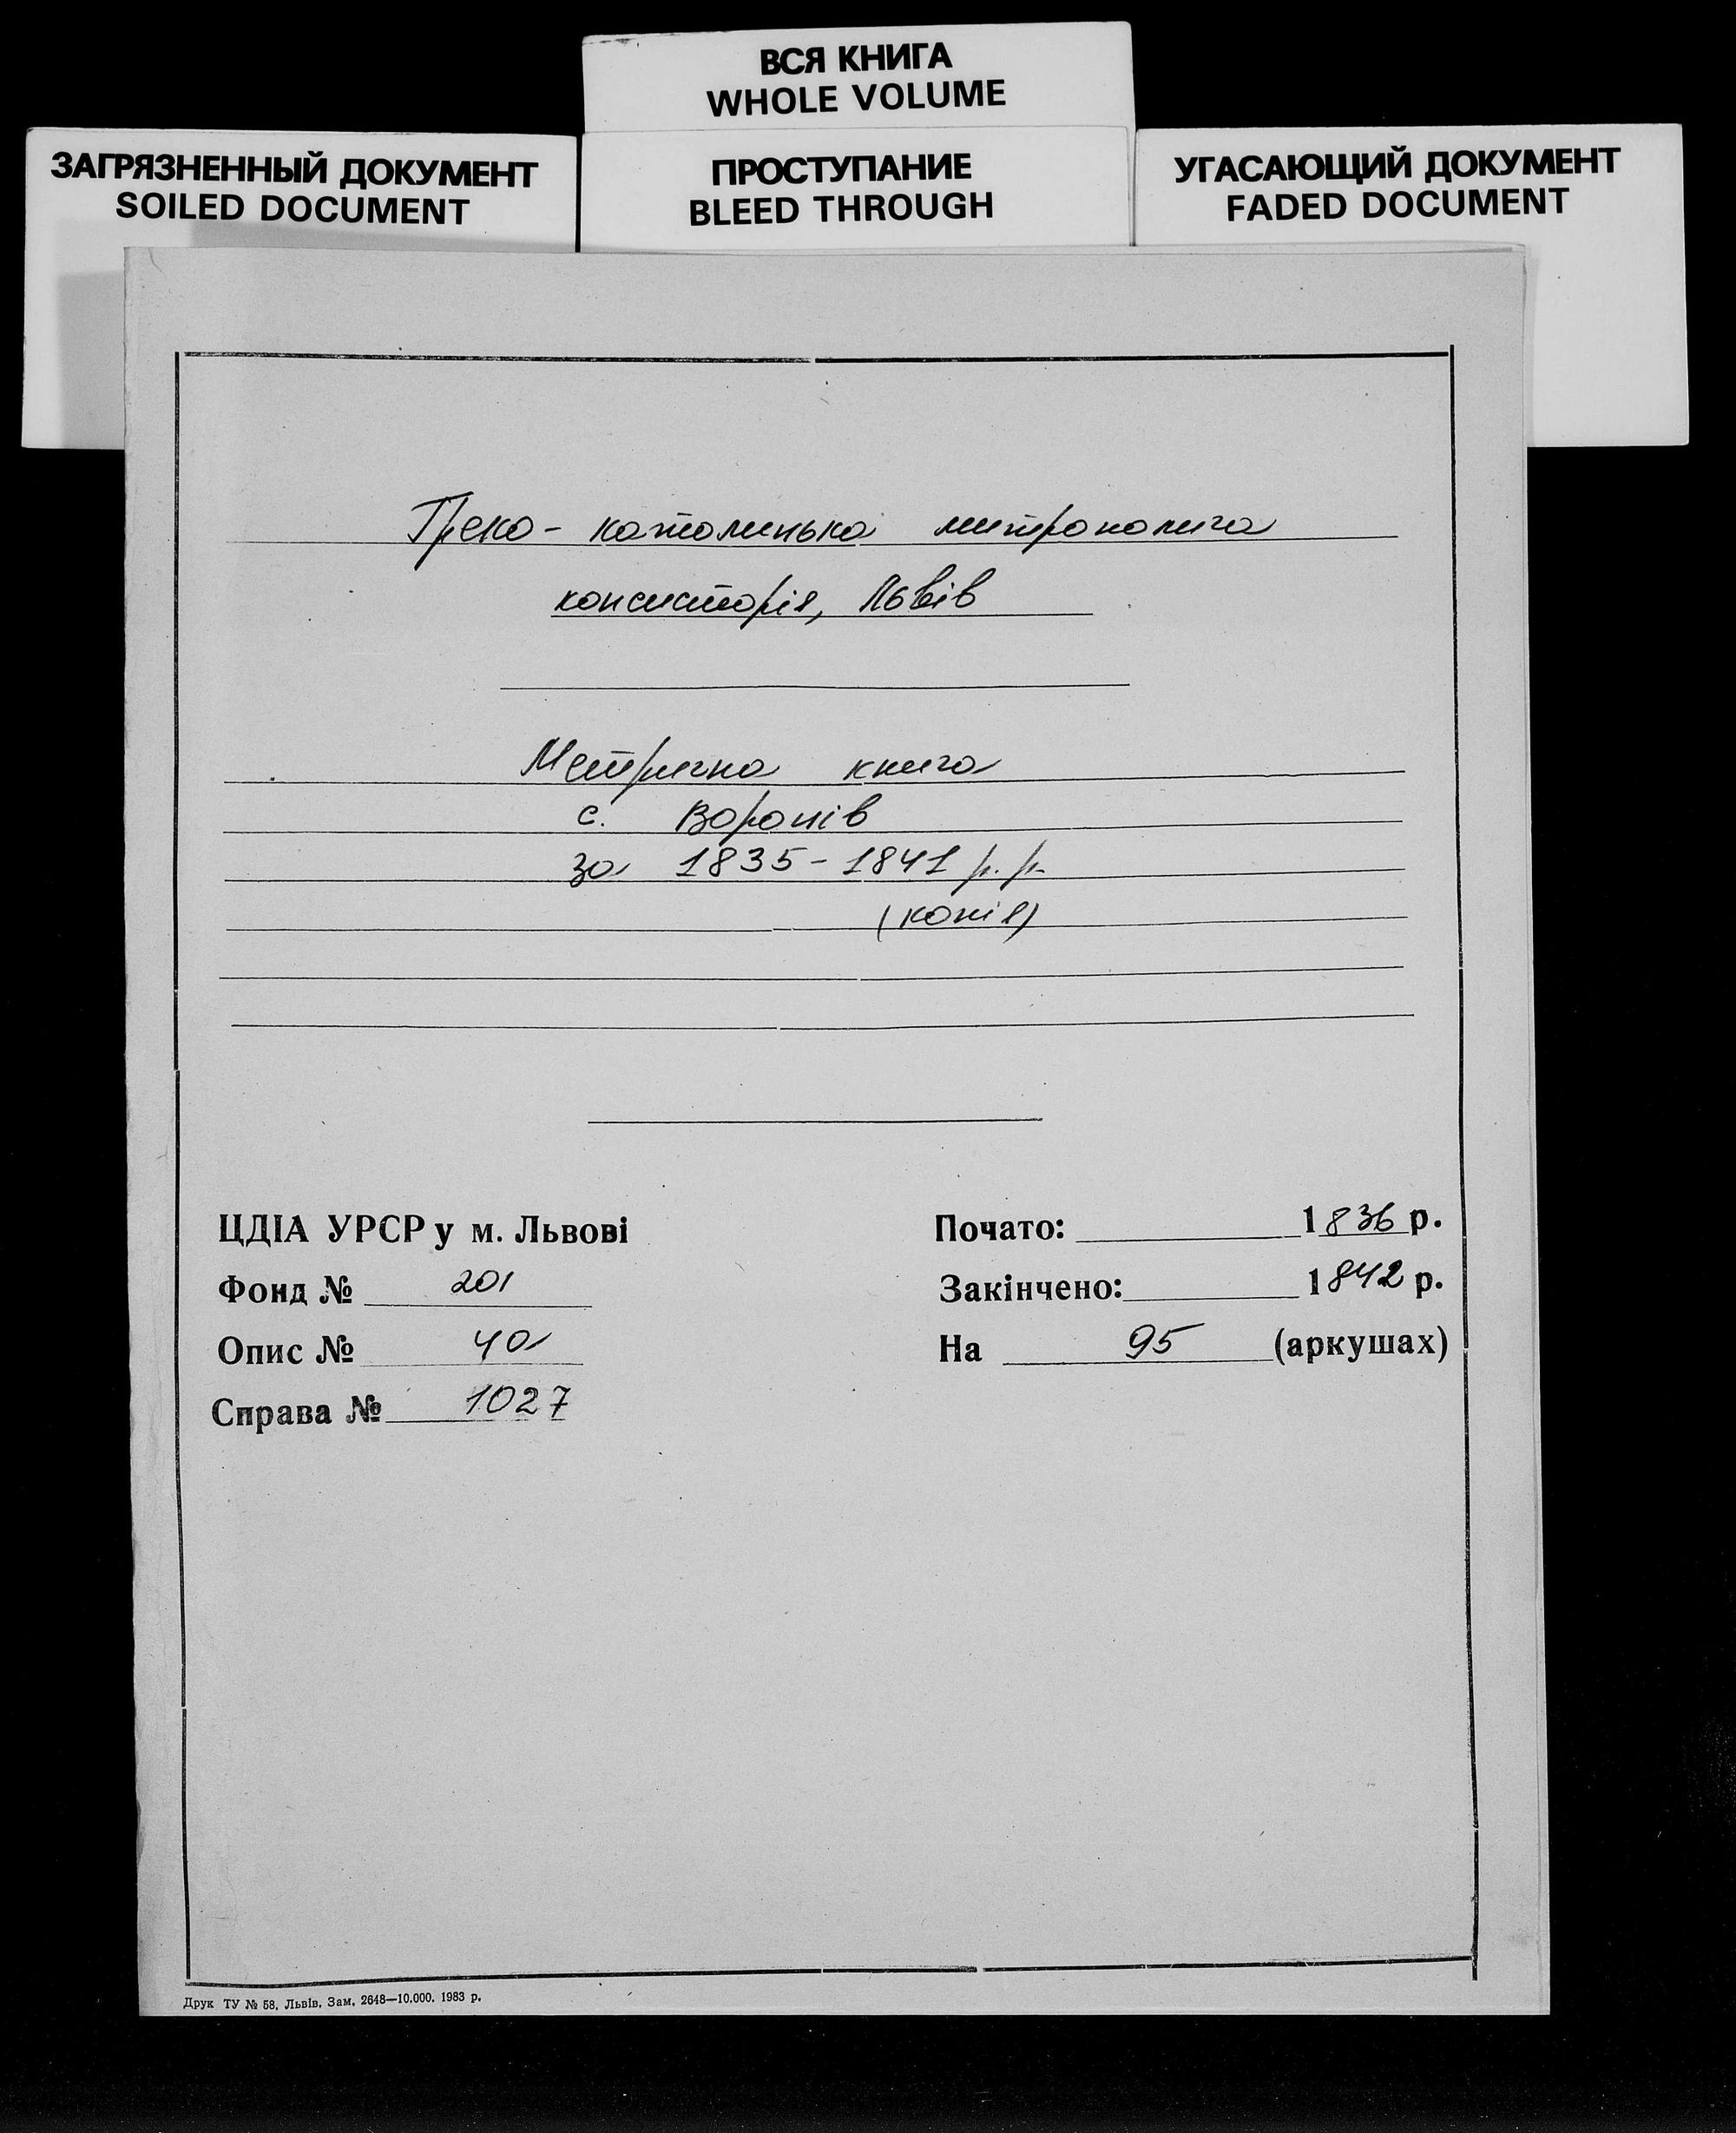 ВСЯ КНИГА
WHOLE VOLUME
ЗАГРЯЗНЕННЫЙ ДОКУМЕНТ
SOILED DOCUMENT
ПРОСТУПАНИЕ
BLEED THROUGH
УГАСАЮЩИЙ ДОКУМЕНТ
FADED DOCUMENT
Греко-католицька митрополича
консисторія, Львів
Метрична книга
с. Воронів
за 1835-1841 р.р.
(копія)
ЦДІА УРСР у м. Львові
Фонд № 201
Опис № 4а
Справа № 1027
Почато: 1836 р.
Закінчено: 1842 р.
На 95 (аркушах)
Друк ТУ № 58, Львів, Зам. 2648—10,000. 1983 р.